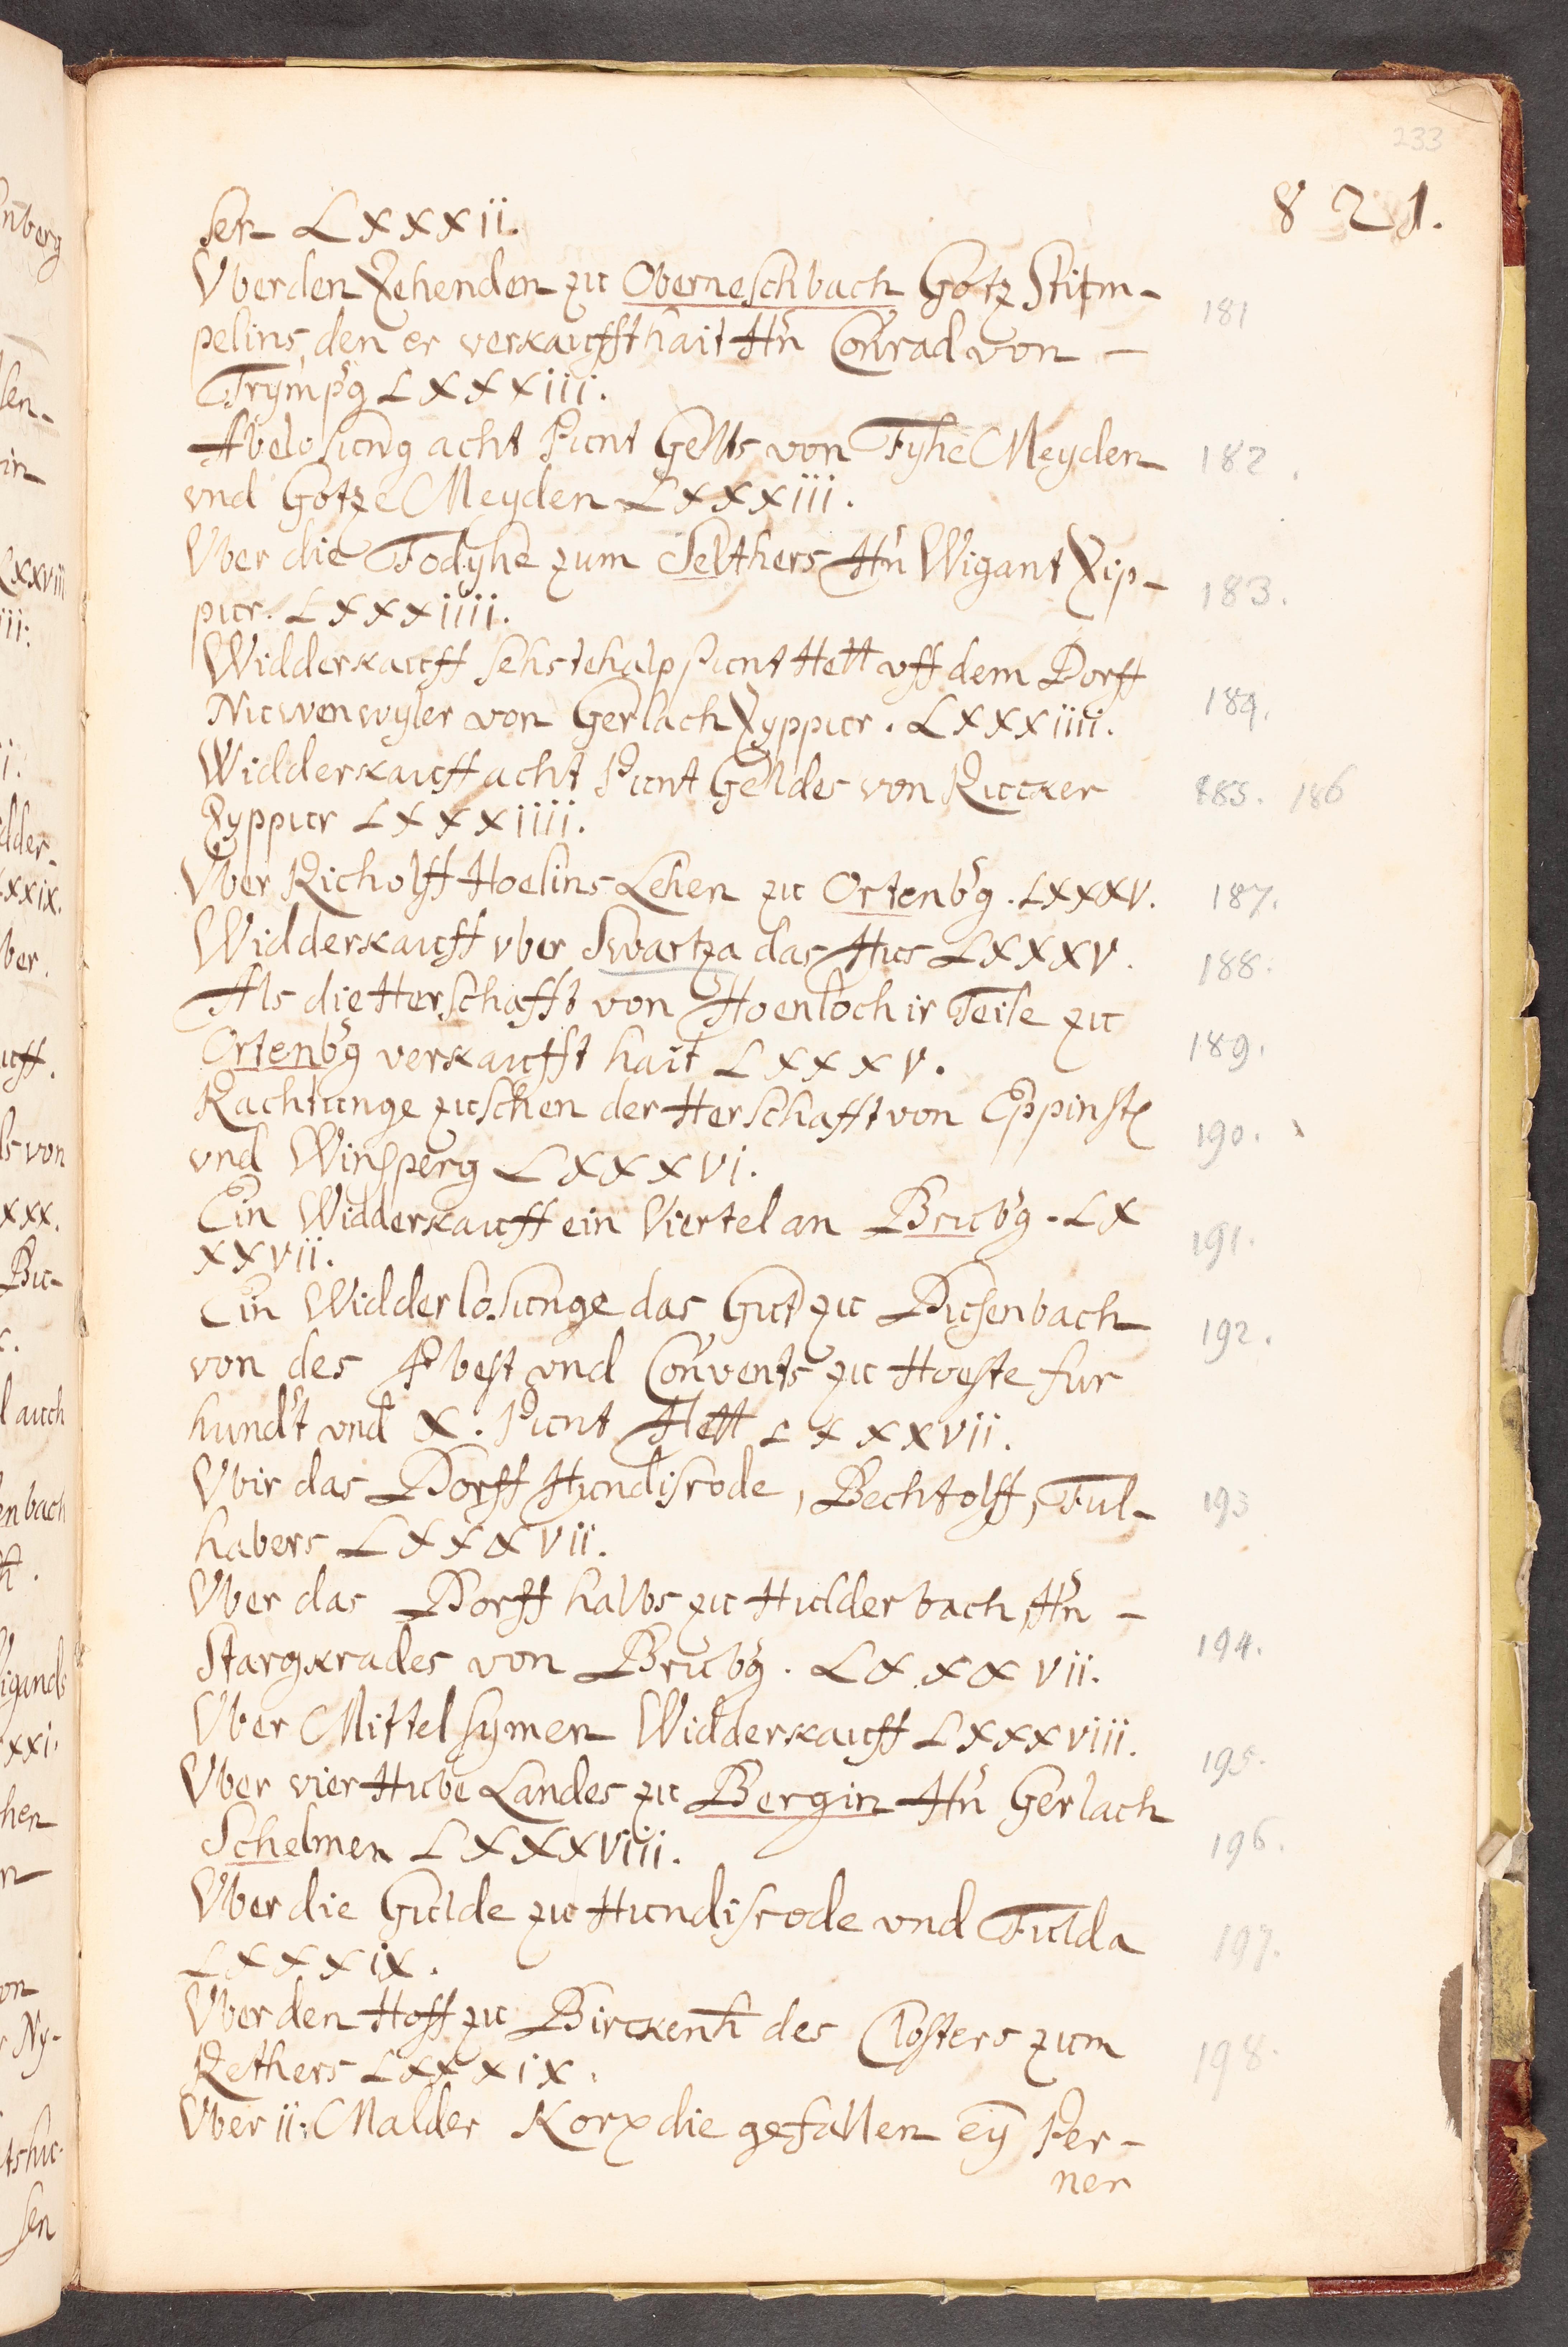 233
821.
sen LXXXII.
Vber den Zehenden zu Oberneschbach Gotz Stum- 181
pelins, den er verkaufft hait Hn Conrad von -
Trymp̄g LXXXIII.
Abelosung acht Punt Gelts von Fyhe Meyden 182.
vnd Gotze Meyden LXXXIII.
Vber die Fodyhe zum Selthers Hn Wigant Zip- 183.
pur. LXXXIIII.
Widderkauff sehstehalp Punt Hell vff dem Dorff
Nuwenwyler von Gerlach Zyppur. LXXXIIII. 184.
Widderkauff acht Punt Geldes von Rucker 185. 186
Zyppur LXXXIIII.
Vber Richolff Hoelins Lehen zu Ortenb̄g. LXXXV. 187.
Widderkauff vber Swartza das Hus LXXXV. 188.
Als die Herschafft von Hoenloch ir Teile zu
Ortenb̄g verkaufft hait LXXXV. 189.
Rachtunge zuschen der Herschafft von Eppinst 190.
vnd Winsperg LXXXVI.
Ein Widderkauff ein Viertel an Brub̄g. LX 191.
XXVII.
Ein Widderlosunge das Gut zu Dusenbach 192.
von des Pbest vnd Convents zu Hoeste fur
hund't vnd X. Punt Hell LXXXVII.
Vbir das Dorff Hundisrode, Bechtolff, Ful- 193
habers LXXXVII.
Vber das Dorff halbs zu Hulderbach, Hn -
Stargkrades von Brub̄g. LXXXVII. 194.
Vber Mittelsymen Widderkauff LXXXVIII. 195.
Vber vier Hube Landes zu Bergin Hn Gerlach
Schelmen LXXXVIII. 196.
Vber die Gulde zu Hundisrode vnd Fulda 197.
LXXXIX.
Vber den Hoff zu Birckenh des Closters zum 198.
Rethers LXXXIX.
Vber II: Malder Korn die gefallen ey Per-
ner